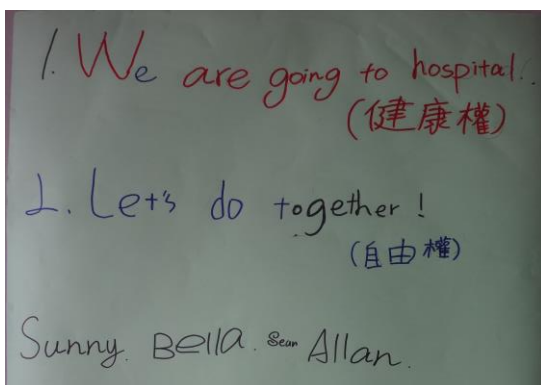 1. We are going to hospital.
(健康權)
2. Let's do together!
(自由權)
Sunny. Bella. Sean Allan.